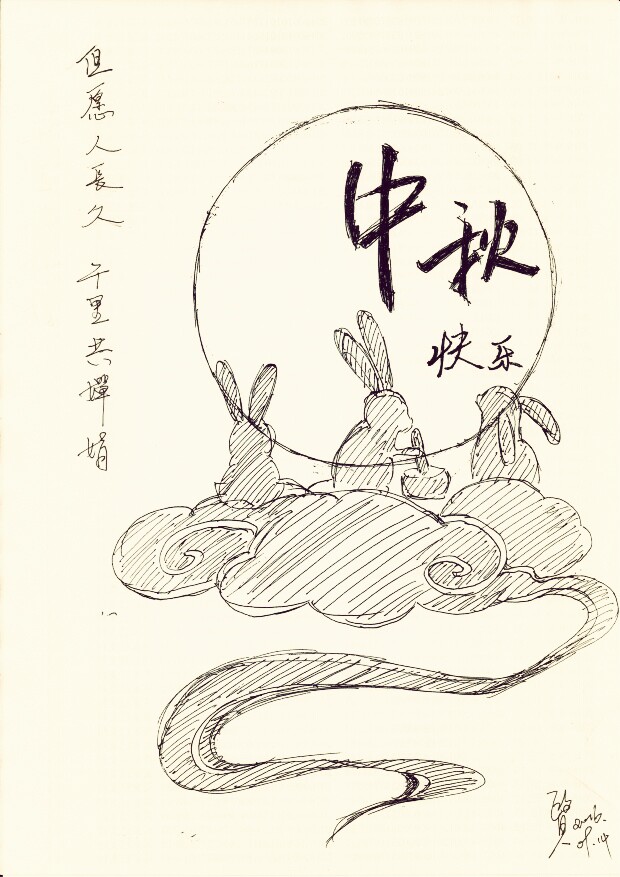 但愿人長久 千里共嬋娟
中秋
快乐